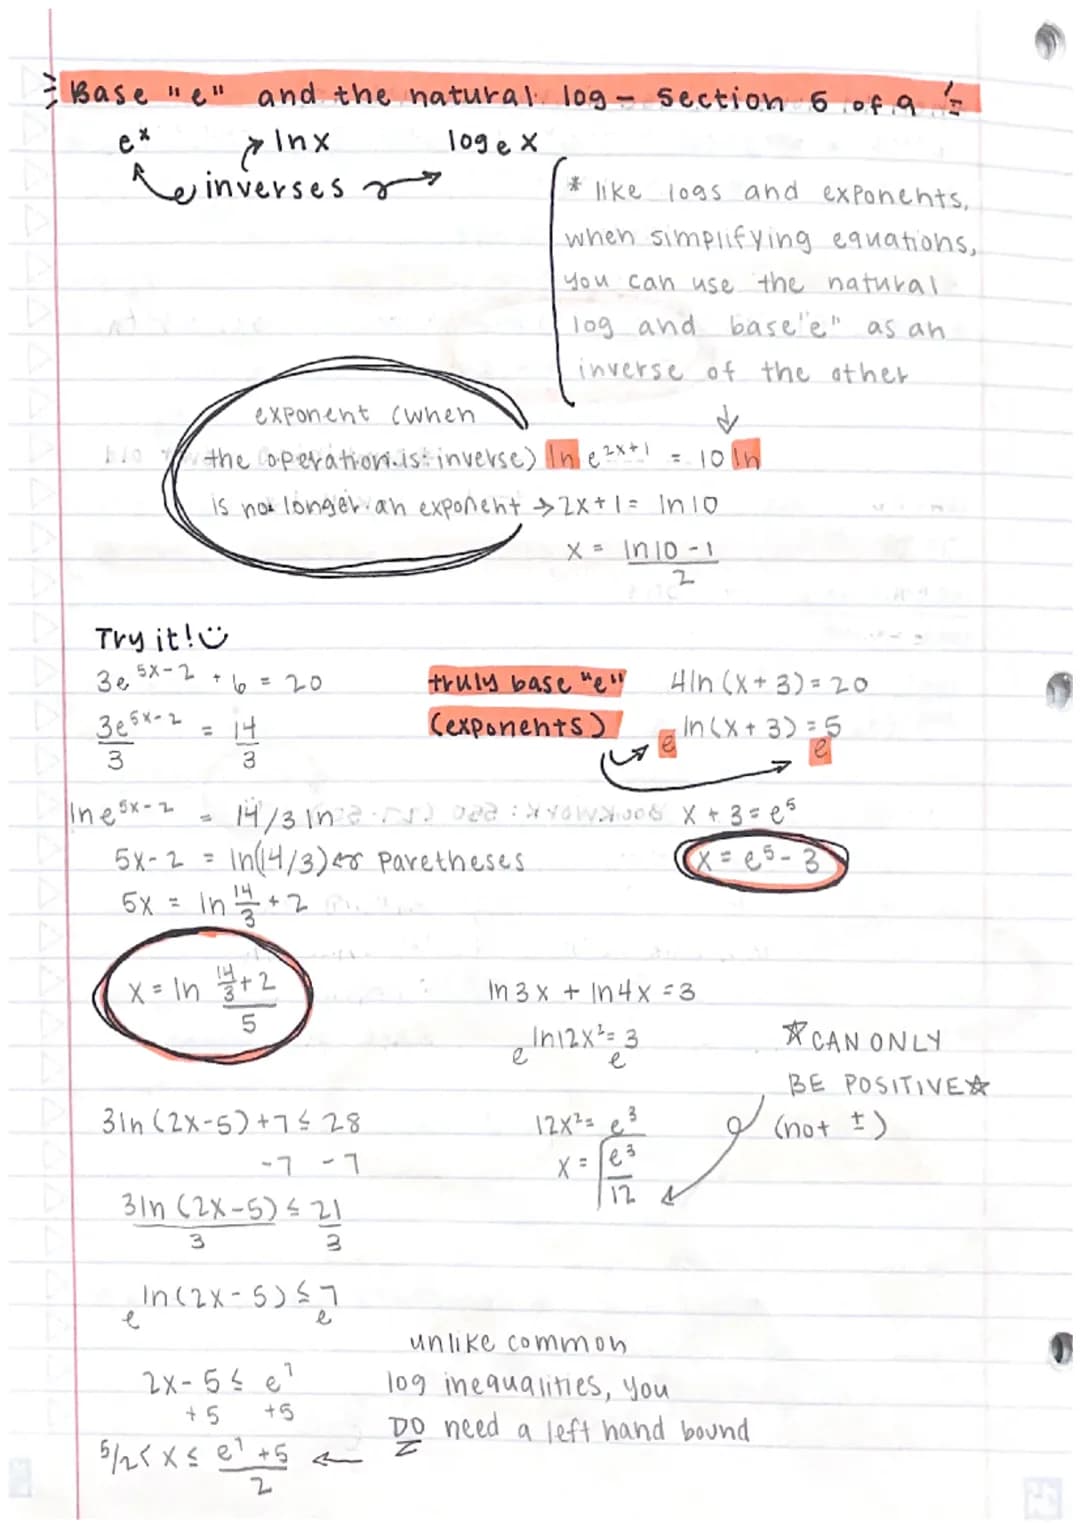 Base "e" and the natural log - section 5 of 9
e^x ln x log e x
inverses
* like logs and exponents,
when simplifying equations,
you can use the natural
log and base "e" as an
inverse of the other
exponent (when
the operation is inverse)
is no longer an exponent →
ln e^2x+1 = 10 ln
2x+1 = ln10
x = ln10 - 1
2
Try it!
3e^5x-2 + 6 = 20
3e^5x-2 = 14
3 3
ln e^5x-2 = 14/3 ln
5x-2 = ln(14/3) ← Paretheses
5x = ln 14/3 + 2
x = ln 14/3 + 2
5
truly base "e"
(exponents)
4ln (x+3) = 20
ln(x+3) = 5
e e
x + 3 = e^5
x = e^5 - 3
ln 3x + ln 4x = 3
e ln12x² = 3 e
12x² = e^3
x = √e^3
12
☆ CAN ONLY
BE POSITIVE ☆
(not ±)
3ln (2x-5) + 7 ≤ 28
-7 -7
3ln (2x-5) ≤ 21
3 3
ln(2x-5) ≤ 7
e e
2x-5 ≤ e^7
+5 +5
5/2 < x ≤ e^7 +5
2
unlike common
log inequalities, you
DO need a left hand bound